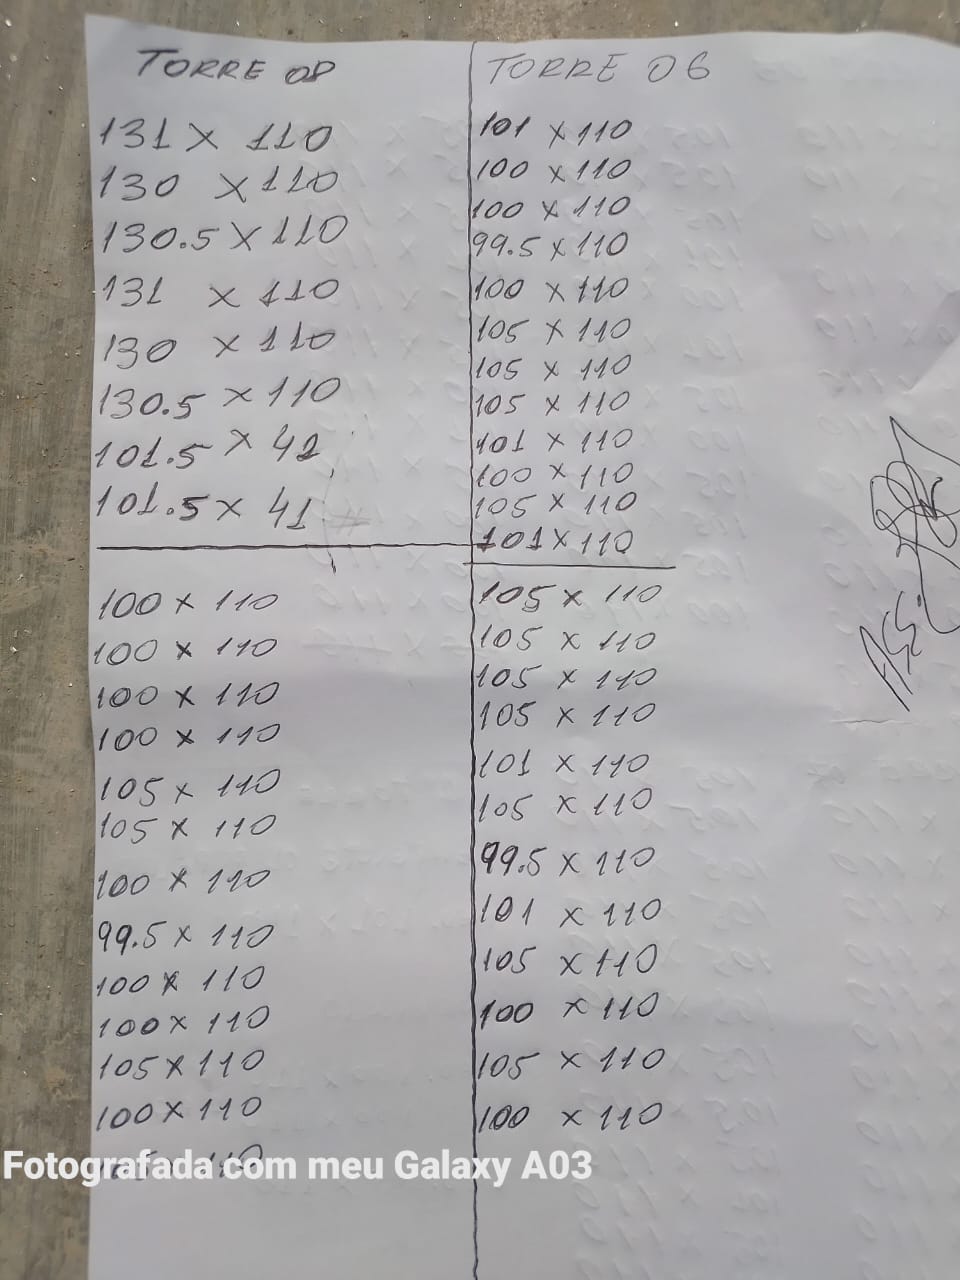 TORRE 08
131 x 110
130 x 110
130.5 x 110
131 x 110
130 x 110
130.5 x 110
101.5 x 42
101.5 x 41
100 x 110
100 x 110
100 x 110
100 x 110
105 x 110
105 x 110
100 x 110
99.5 x 110
100 x 110
100 x 110
105 x 110
100 x 110
105 x 110
TORRE 06
101 x 110
100 x 110
100 x 110
99.5 x 110
100 x 110
105 x 110
105 x 110
105 x 110
101 x 110
100 x 110
105 x 110
101 x 110
105 x 110
105 x 110
105 x 110
105 x 110
101 x 110
105 x 110
99.5 x 110
101 x 110
105 x 110
100 x 110
105 x 110
100 x 110
ASS:
Fotografada com meu Galaxy A03